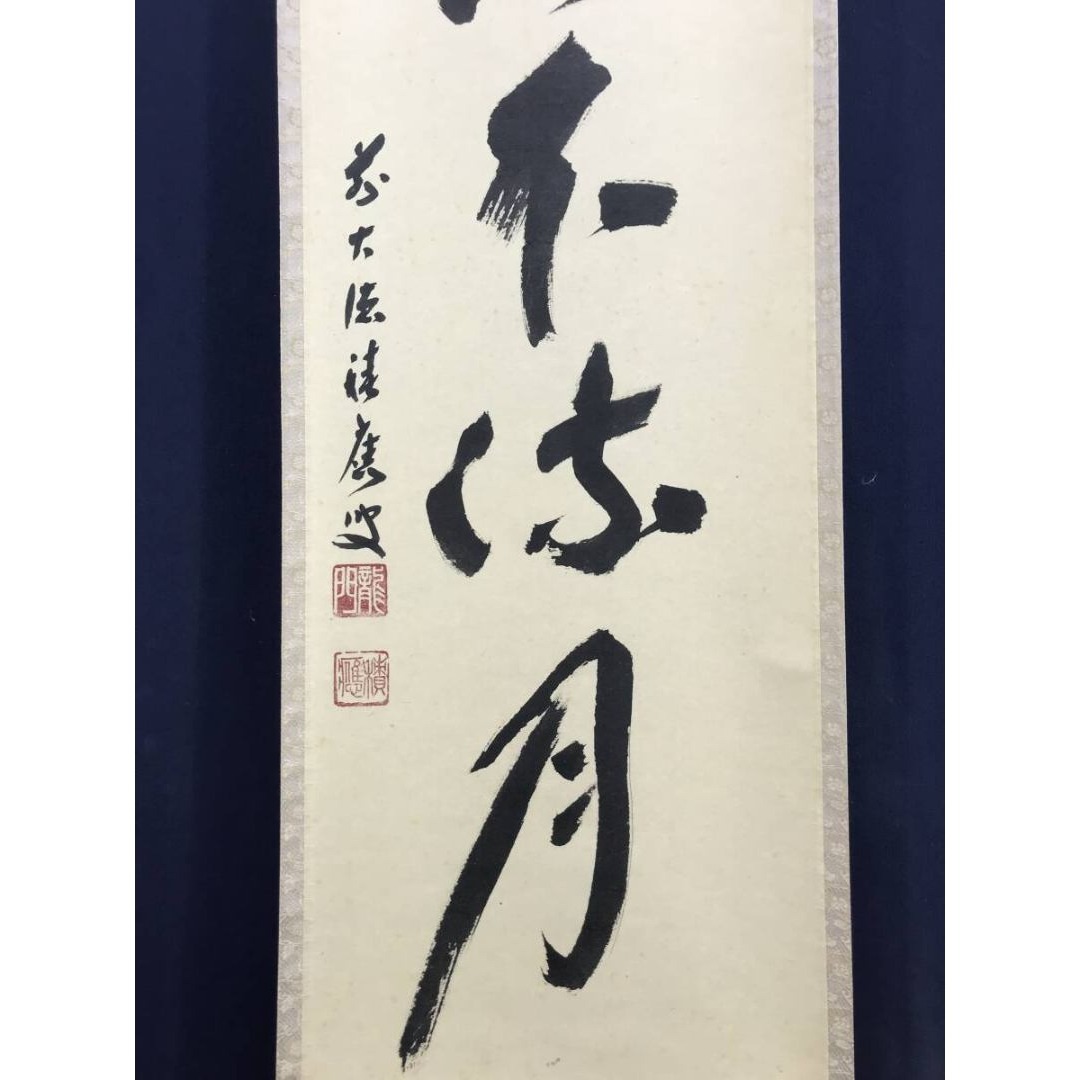 不流月
前大徳積應叟
龍門
積應